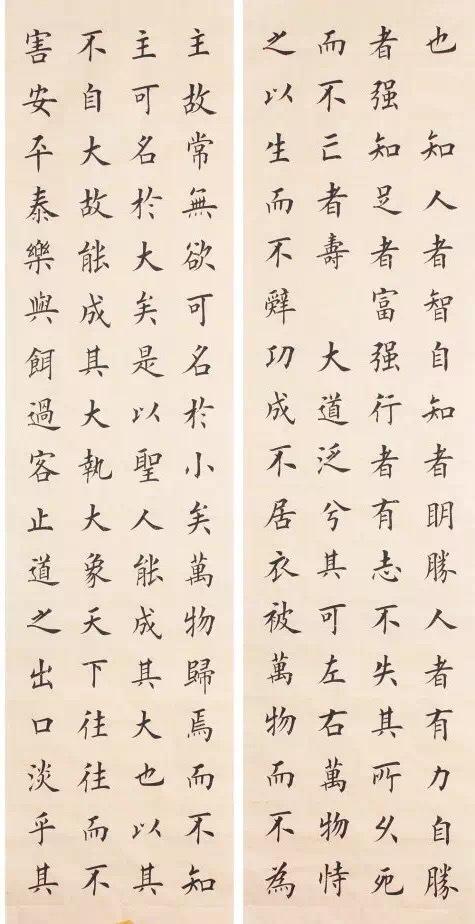 也 知人者智自知者眀勝人者有力自勝
者强知足者富强行者有志不失其所久死
而不亡者壽 大道泛兮其可左右萬物恃
之以生而不辭功成不居衣被萬物而不為
主故常無欲可名於小矣萬物歸焉而不知
主可名於大矣是以聖人能成其大也以其
不自大故能成其大執大象天下往往而不
害安平泰樂與餌過客止道之出口淡乎其